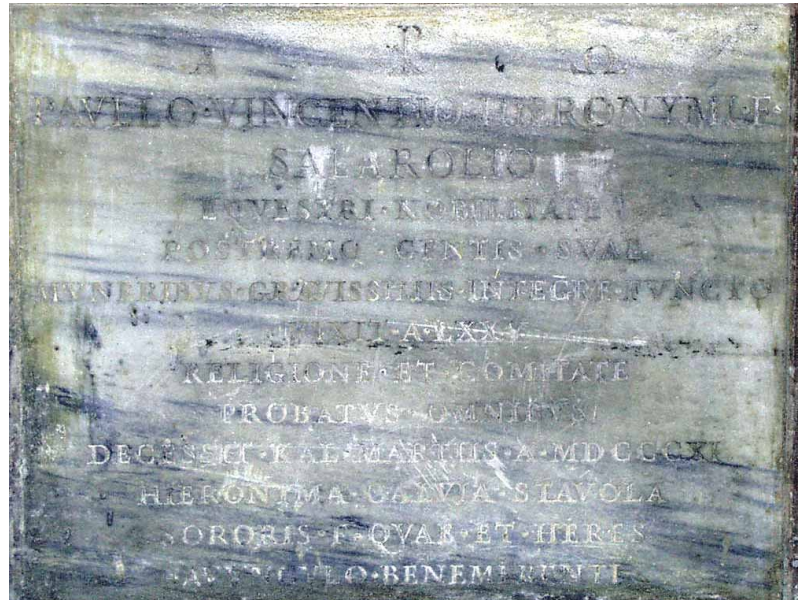 A ☧ Ω
PAVLLO·VINCENTIO·HIERONYMI·F·
SALAROLIO
EQVESTRI·NOBILITATE
POSTREMO·GENTIS·SVAE
MVNERIBVS·GRAVISSIMIS·INTEGRE·FVNCTO
VIXIT·A·LXXV
RELIGIONE·ET·COMITATE
PROBATVS·OMNIBVS
DECESSIT·KAL·MARTIIS·A·MDCCCXI
HIERONIMA·
SORORIS·F·QVAE·ET·HERES
AVVNCVLO·BENEMERENTI